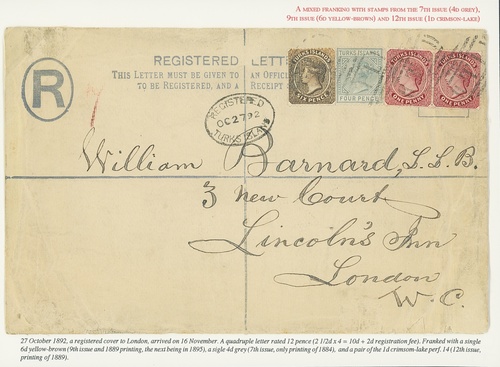 A MIXED FRANKING WITH STAMPS FROM THE 7TH ISSUE (4D GREY),
9TH ISSUE (6D YELLOW-BROWN) AND 12TH ISSUE (1D CRIMSON-LAKE)
REGISTERED LETT
THIS LETTER MUST BE GIVEN TO AN OFFIC
TO BE REGISTERED, AND A RECEIPT
R
TURKS ISLANDS
SIX PENCE
TURKS ISLANDS
FOUR PENCE
TURKS ISLANDS
ONE PENNY
TURKS ISLANDS
ONE PENNY
REGISTERED
OC 27 92
TURKS ISLAND
William Barnard, L.L.B.
3 New Court
Lincoln's Inn
London
W. C.
27 October 1892, a registered cover to London, arrived on 16 November. A quadruple letter rated 12 pence (2 1/2d x 4 = 10d + 2d registration fee). Franked with a single
6d yellow-brown (9th issue and 1889 printing, the next being in 1895), a sigle 4d grey (7th issue, only printing of 1884), and a pair of the 1d crimsom-lake perf. 14 (12th issue,
printing of 1889).